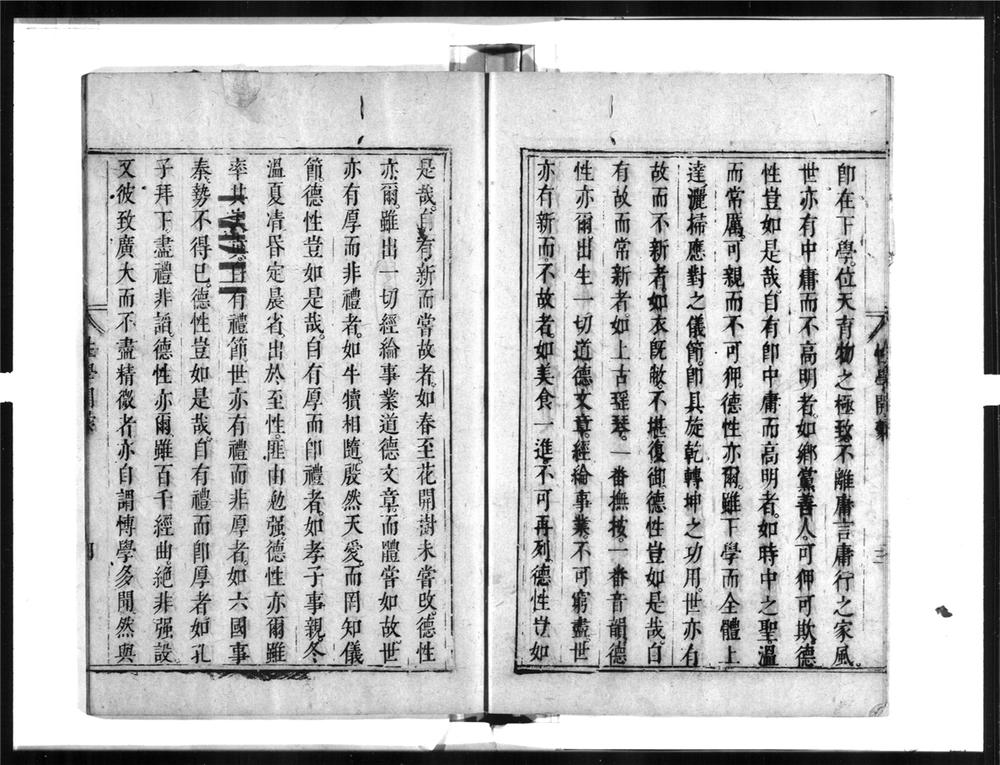 即在下學。位天育物之極致。不離庸言庸行之家風。
世亦有中庸而不高明者。如鄉黨善人。可狎可欺。德
性豈如是哉。自有即中庸而高明者。如時中之聖。溫
而常厲。可親而不可狎。德性亦爾。雖下學而全體上
達。灑掃應對之儀節。即具旋乾轉坤之功用。世亦有
故而不新者。如衣既敝。不堪復御。德性豈如是哉。自
有故而常新者。如上古瑤琴。一番撫按。一番音韻。德
性亦爾。出生一切道德文章。經綸事業。不可窮盡。世
亦有新而不故者。如美食一進。不可再列。德性豈如
性學開蒙 三
是哉。自有新而常故者。如春至花開。樹未嘗改。德性
亦爾。雖出一切經綸事業道德文章。而體嘗如故。世
亦有厚而非禮者。如牛犢相隨。殷然天愛。而罔知儀
節。德性豈如是哉。自有厚而即禮者。如孝子事親。冬
溫夏凊。昏定晨省。出於至性。匪由勉强。德性亦爾。雖
率其 自有禮節。世亦有禮而非厚者。如六國事
秦。勢不得已。德性豈如是哉。自有禮而即厚者。如孔
子拜下。盡禮非諂。德性亦爾。雖百千經曲。絕非强設。
又彼致廣大而不盡精微者。亦自謂博學多聞。然與
性學開蒙 四